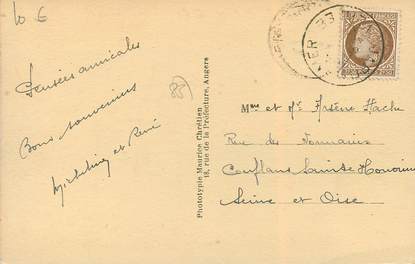 10 €
Pensées amicales
Bons souvenirs
Micheline et René
(85)
Phototypie Maurice Chrétien
18, rue de la Préfecture, Angers
Mme et Mr Arsène
Rue des
Conflans Sainte Honorine
Seine et Oise